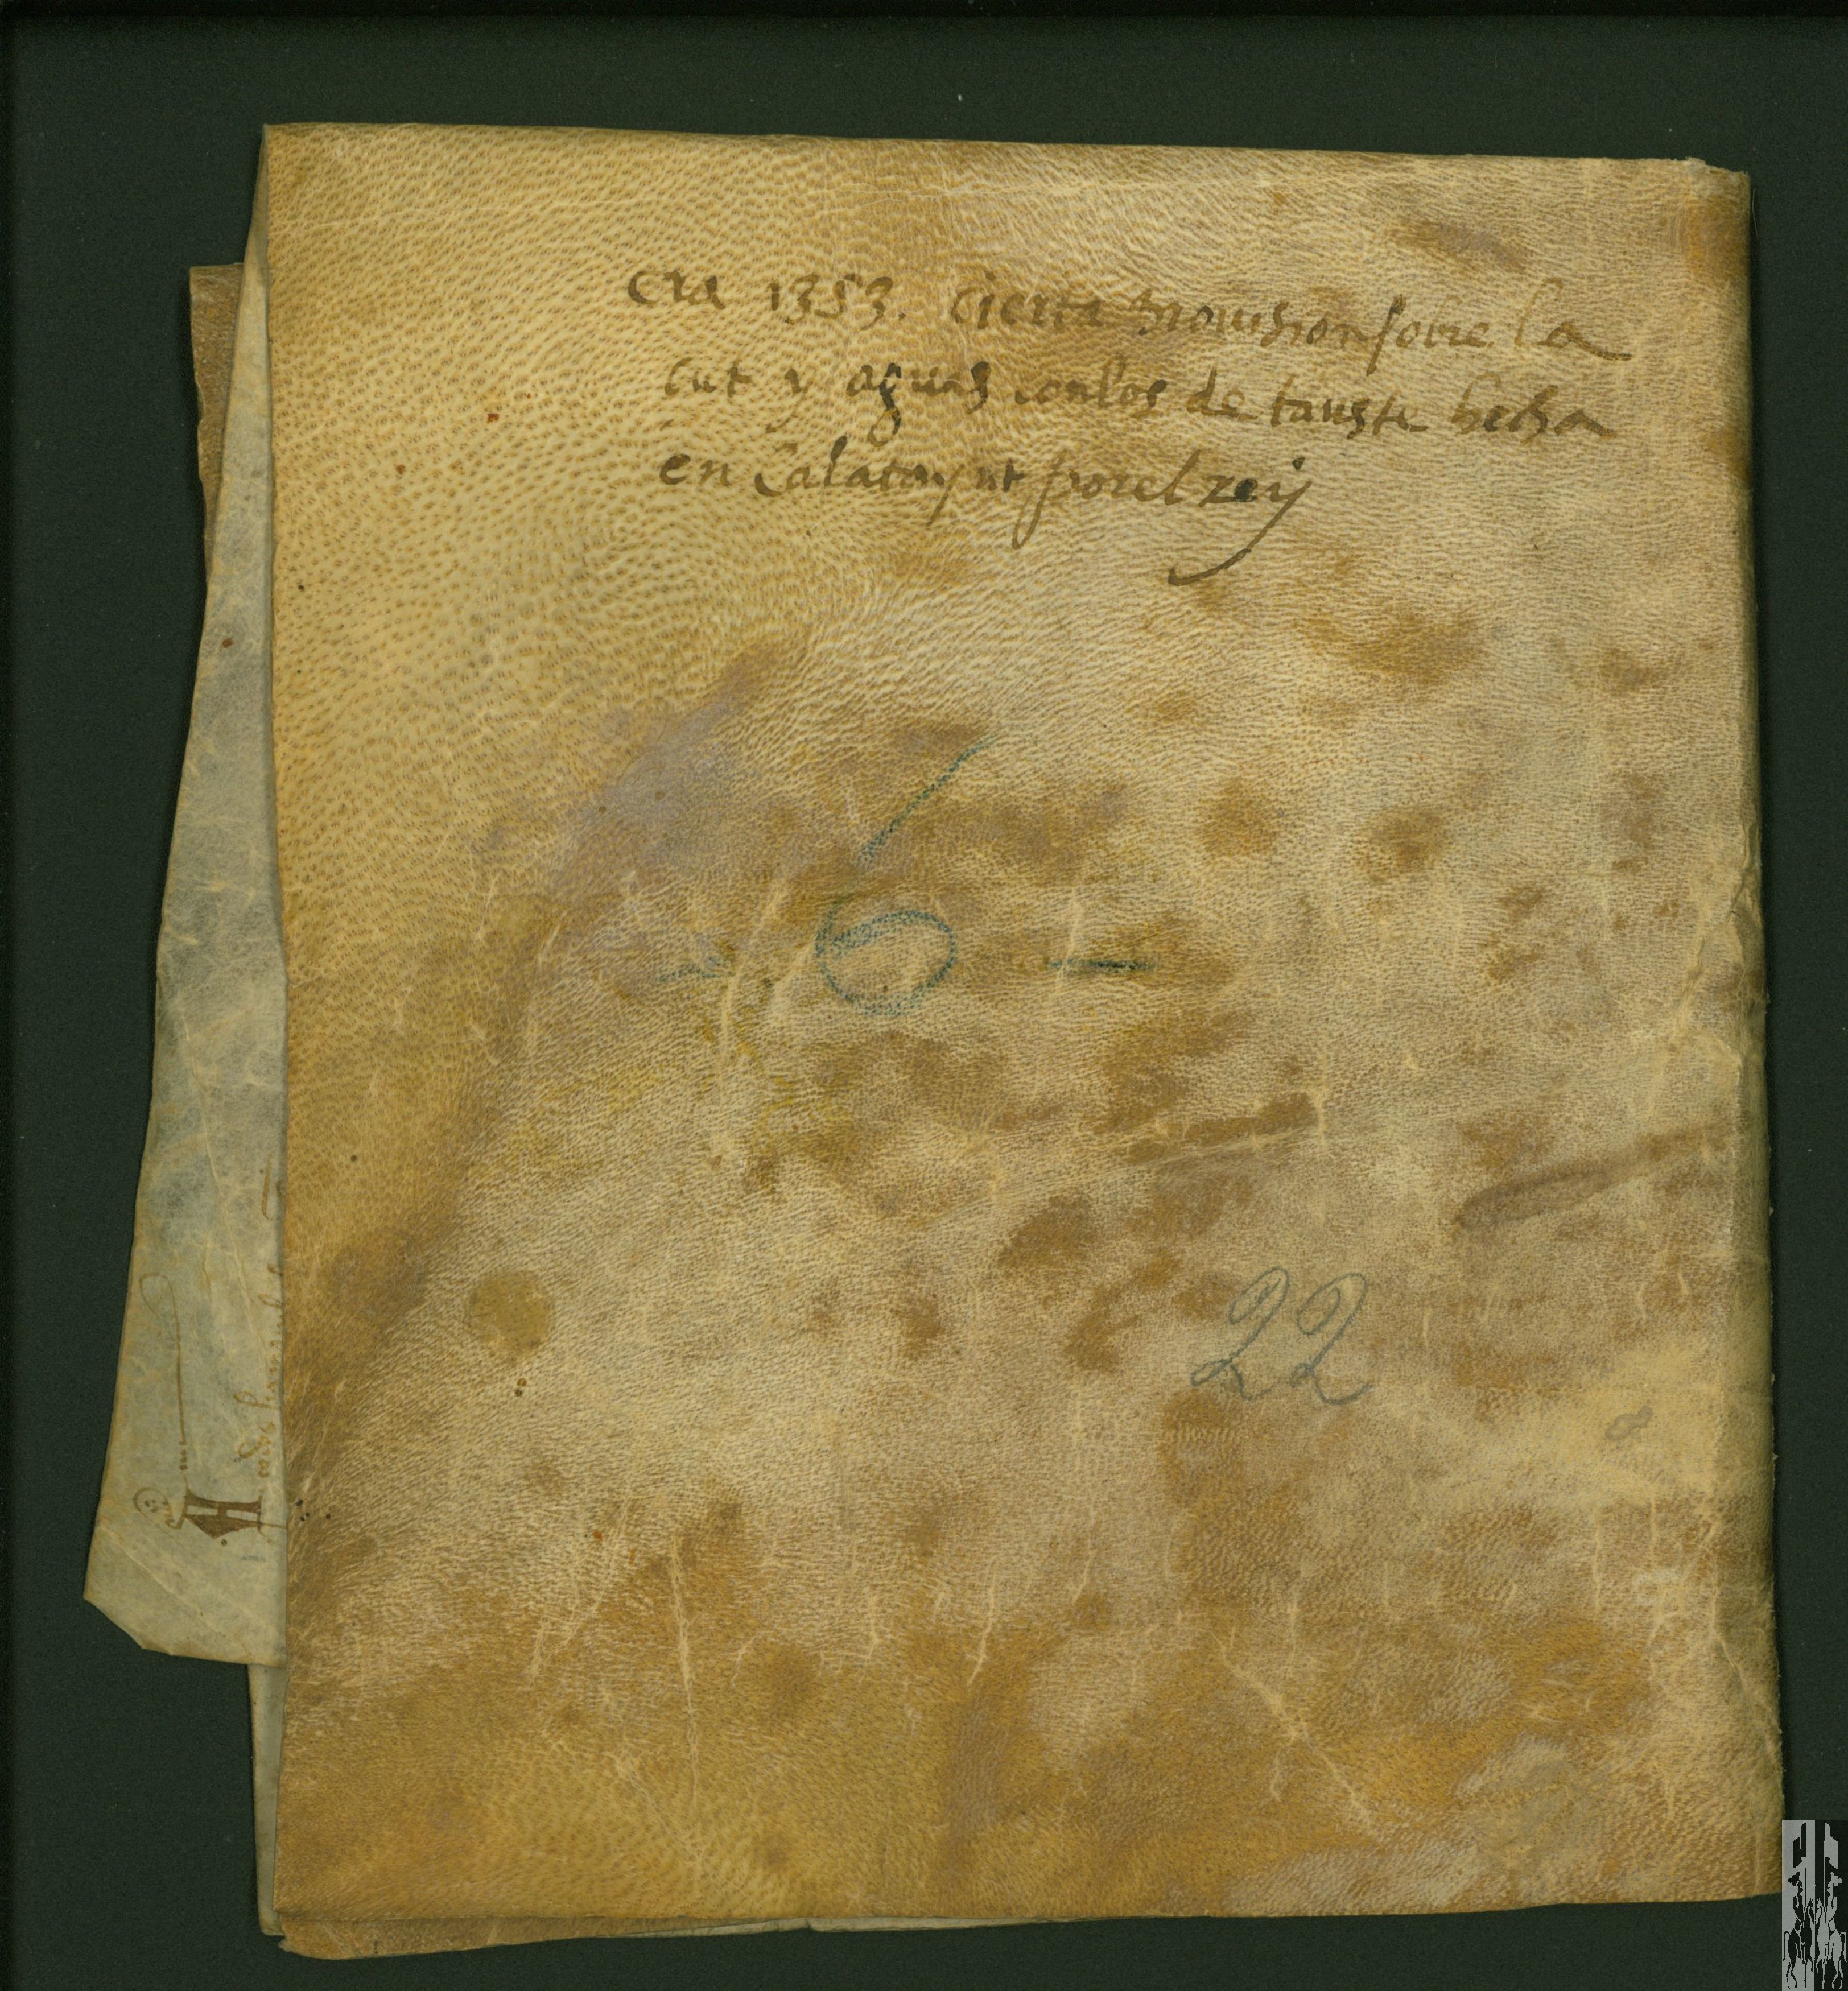 Era 1353. Cierta provision sobre la
çut y aguas con los de tauste hecha
en Calatayut por el rey
6 -
22